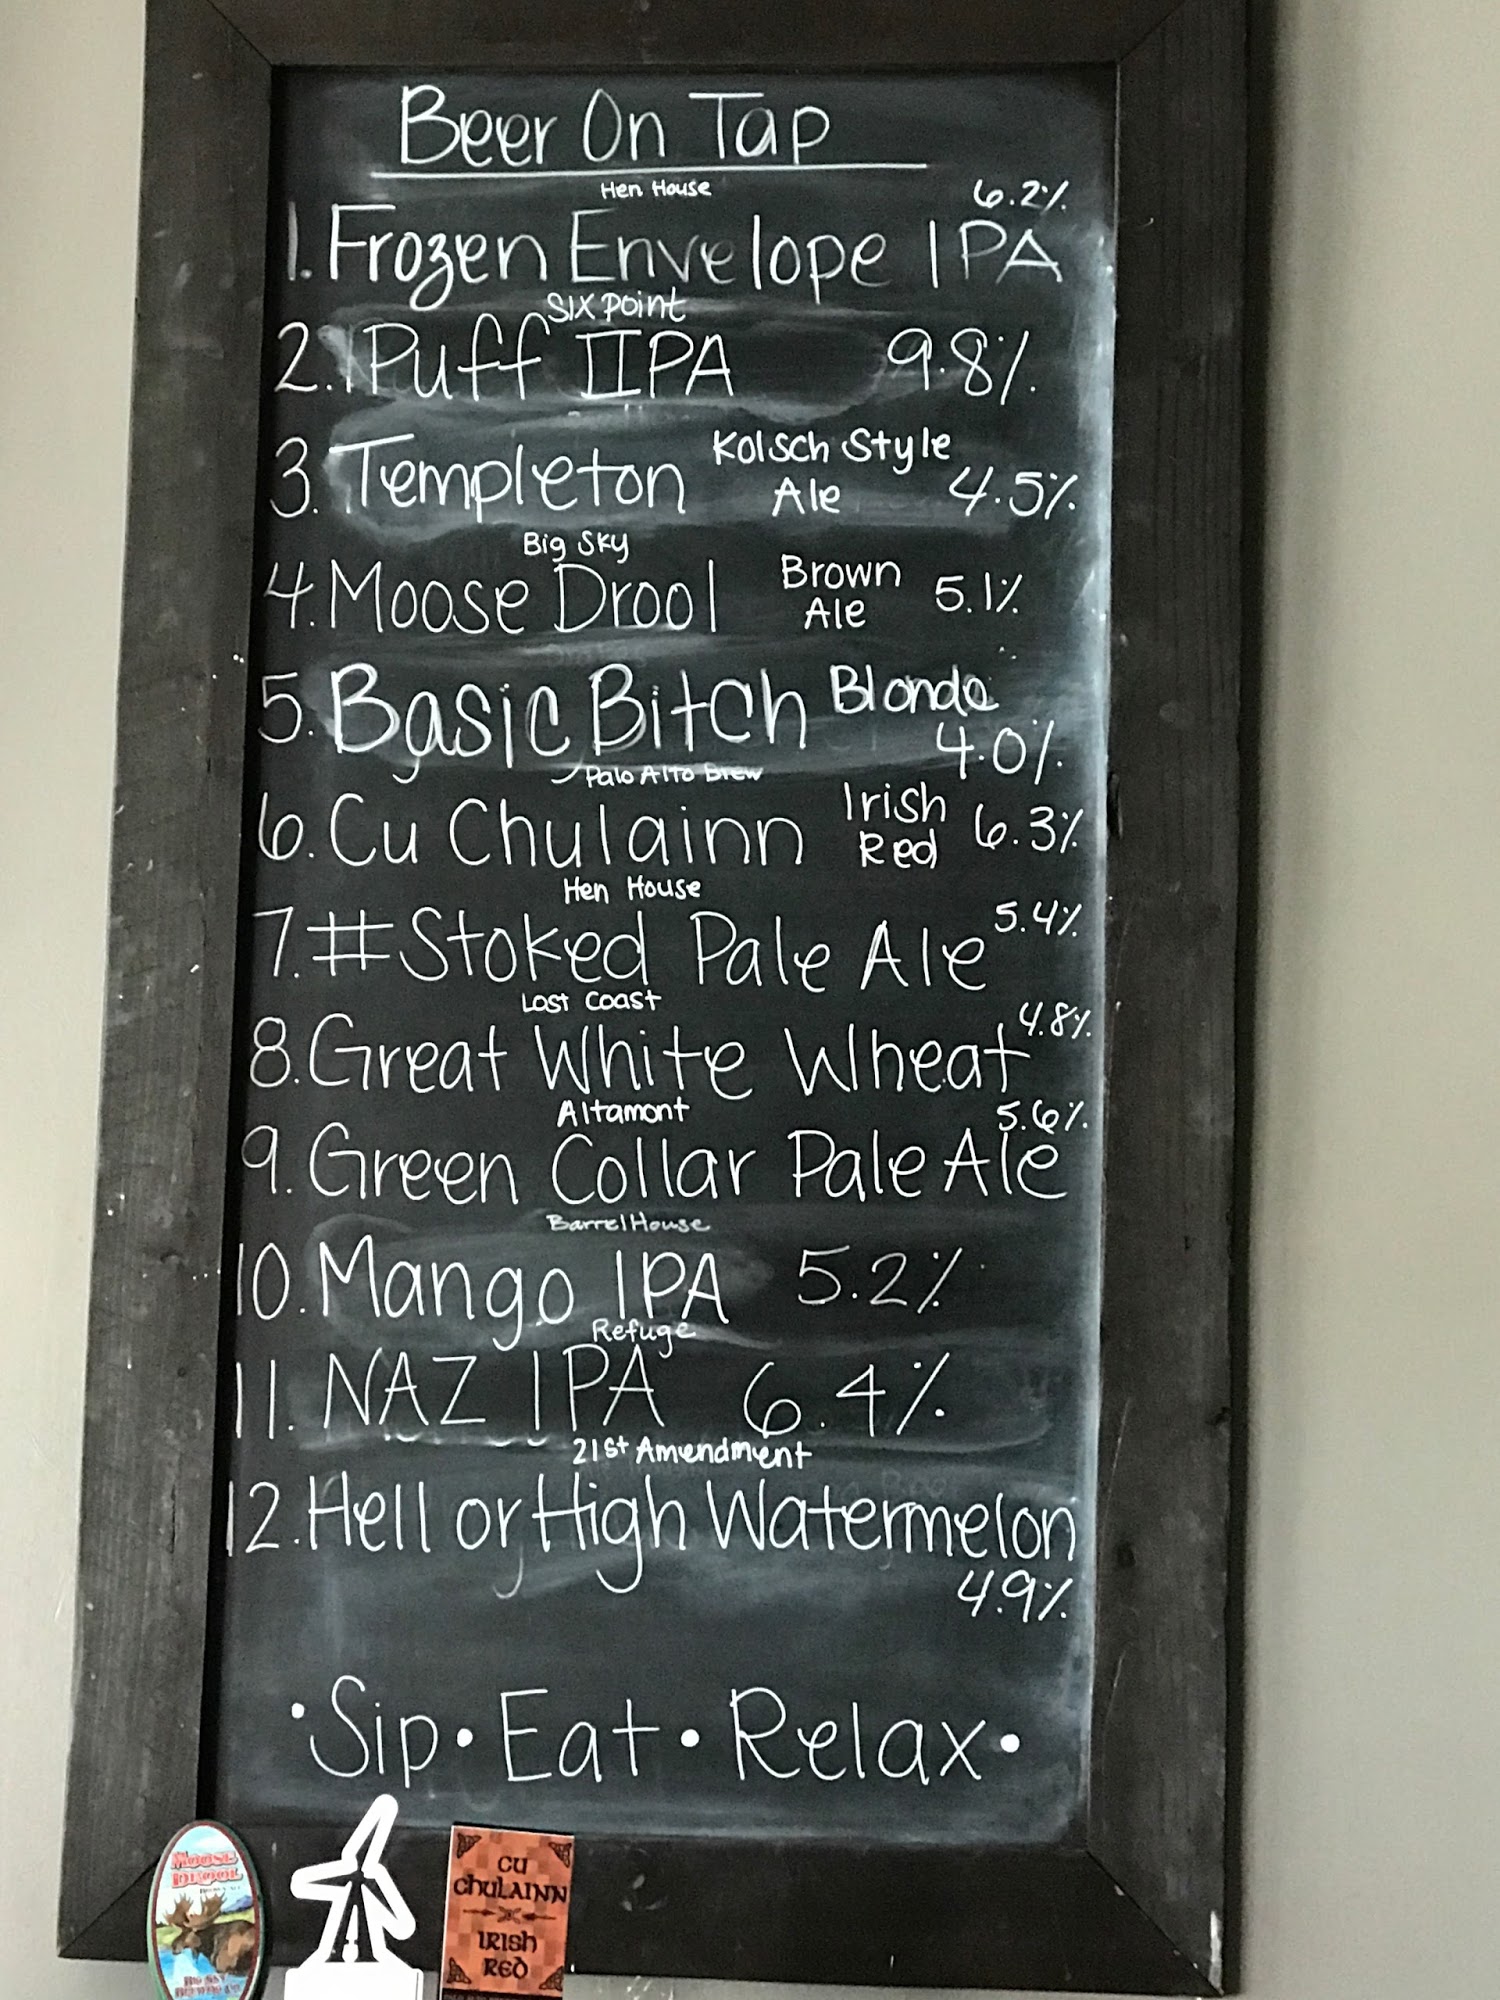 Beer On Tap
Hen House
6.2%
1. Frozen Envelope IPA
Six Point
2. Puff IIPA 9.8%
3. Templeton Kolsch Style Ale 4.5%
Big Sky
4. Moose Drool Brown Ale 5.1%
5. Basic Bitch Blonde 4.0%
Palo Alto Brew
6. Cu Chulainn Irish Red 6.3%
Hen House
7. #Stoked Pale Ale 5.4%
Lost Coast
8. Great White Wheat 4.8%
Altamont
9. Green Collar Pale Ale 5.6%
BarrelHouse
10. Mango IPA 5.2%
Refuge
11. NAZ IPA 6.4%
21st Amendment
12. Hell or High Watermelon
4.9%
• Sip • Eat • Relax •
MOOSE
DROOL
BIG SKY
CU
CHULAINN
IRISH
RED